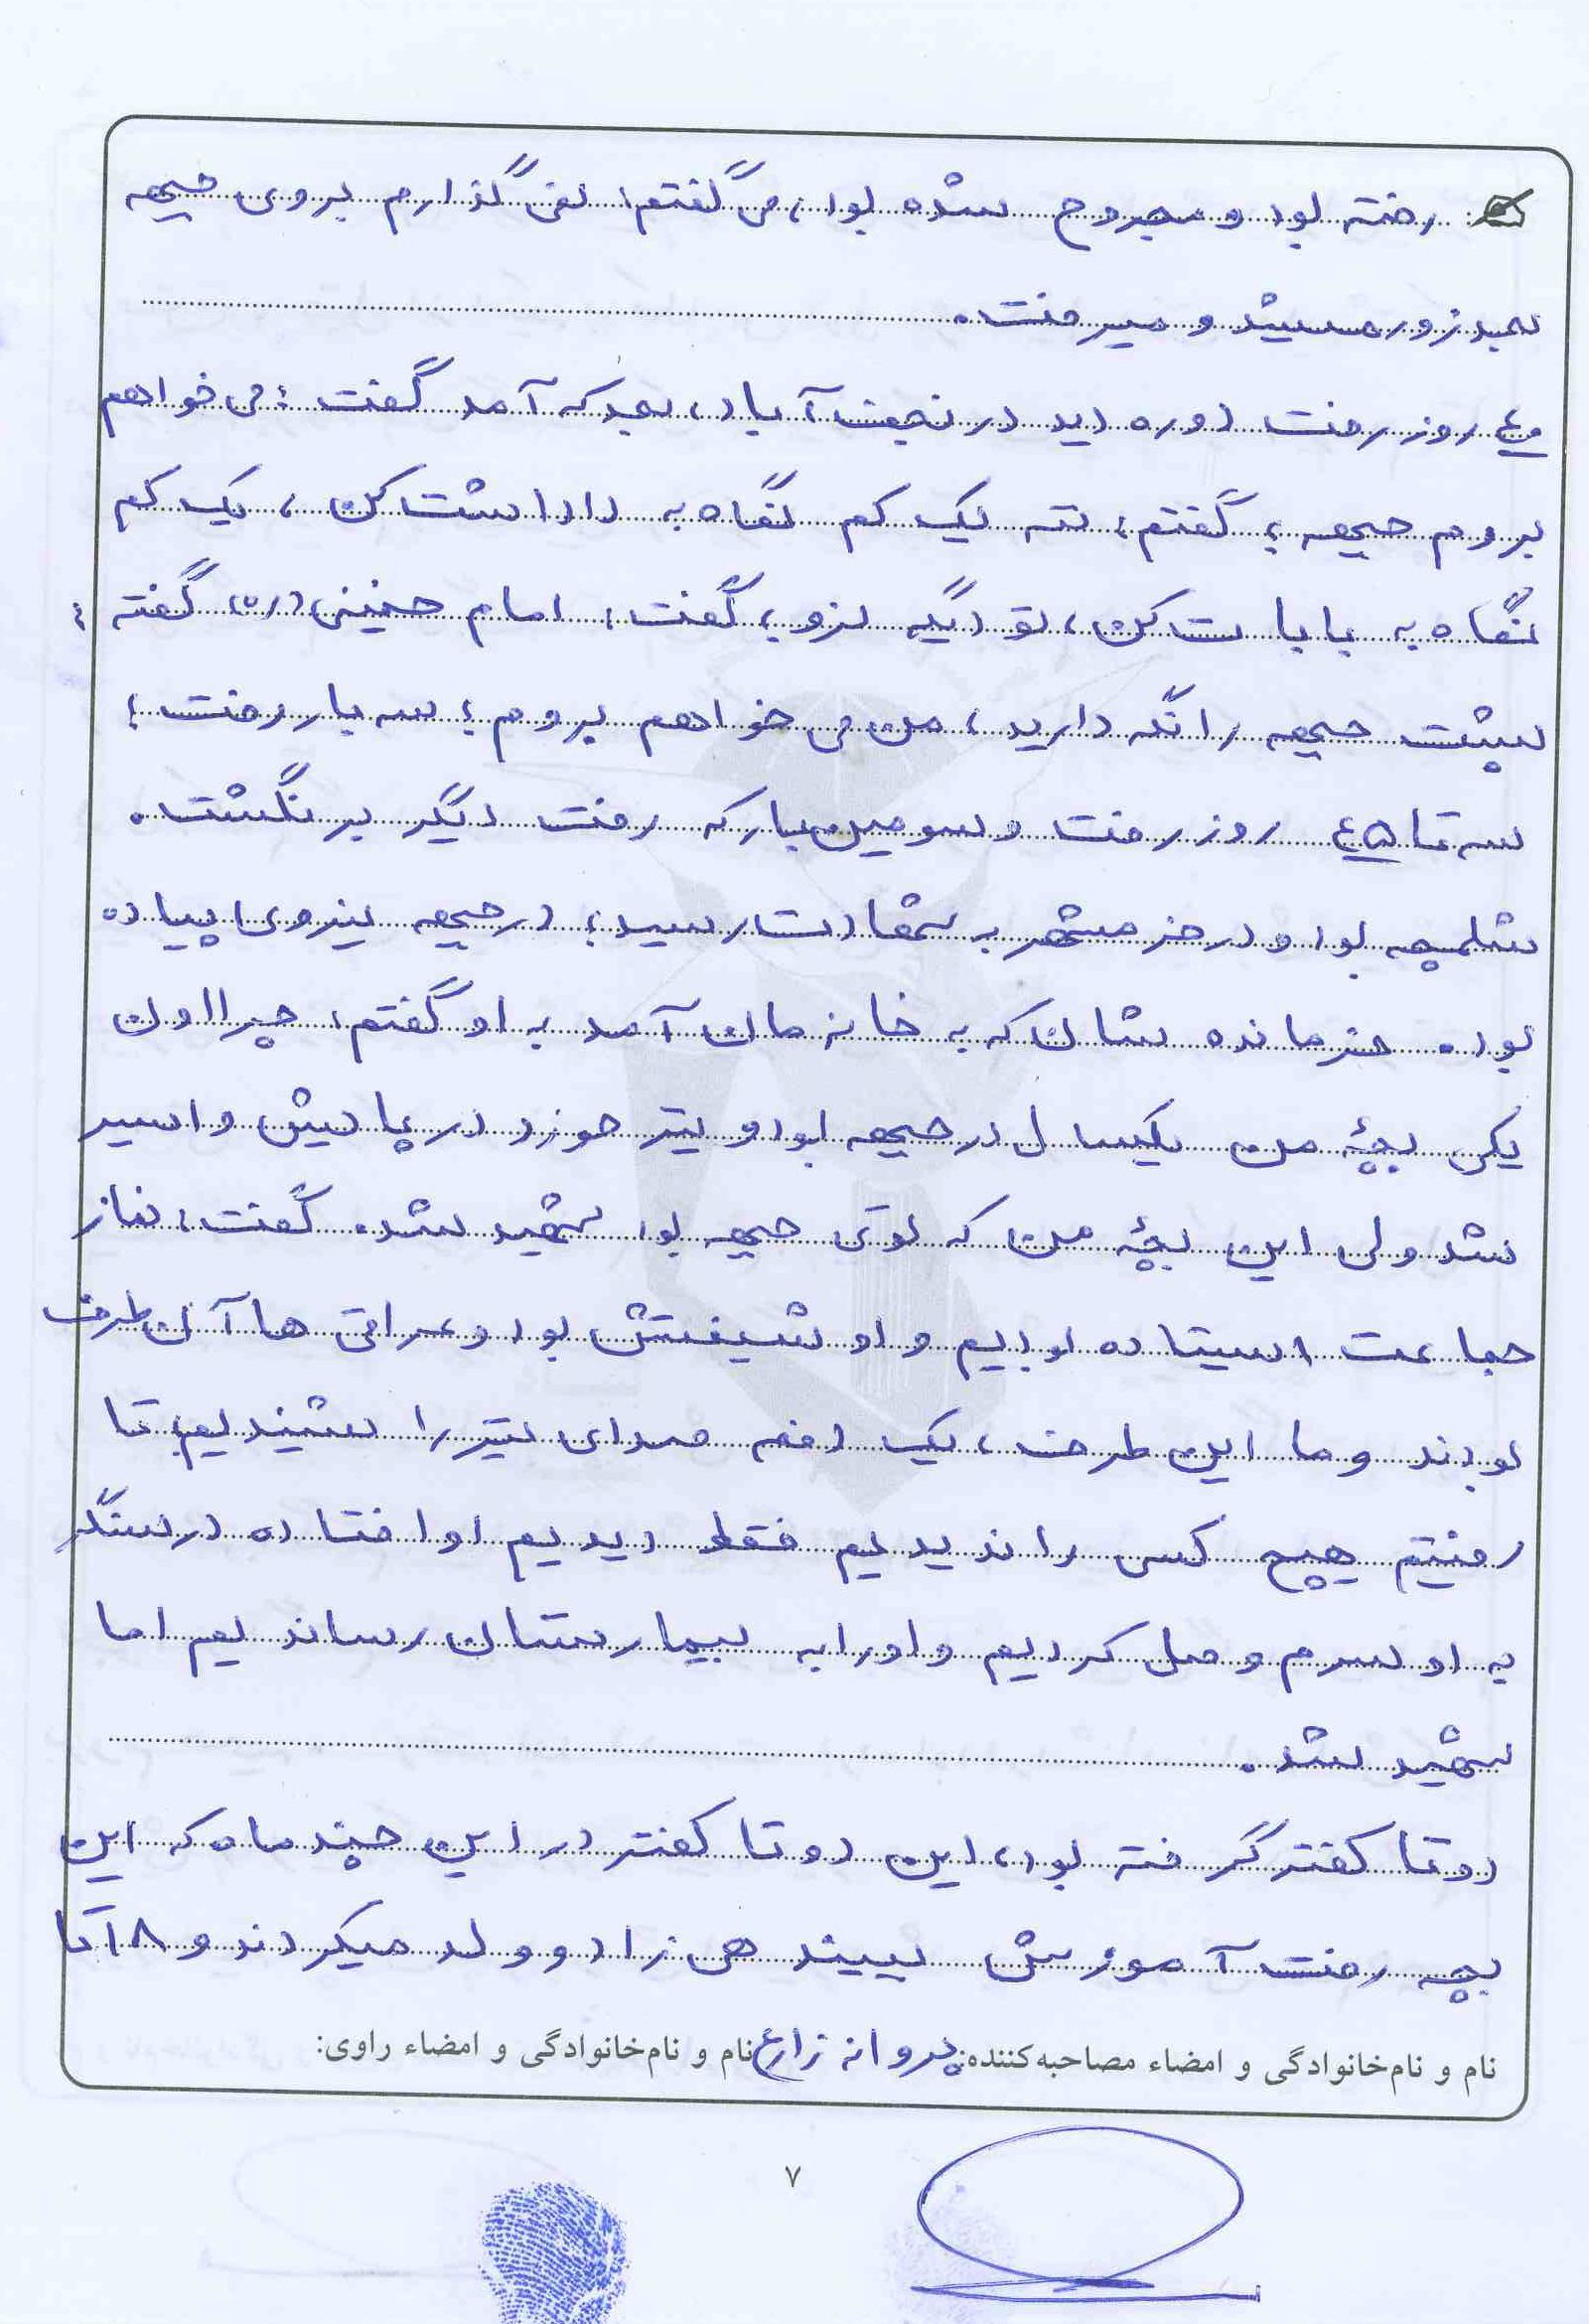 رفته بود و مجروح شده بود، می گفتم: نمی گذارم بروی جبهه
بعد زور میشد و میرفت.
۴۵ روز رفت دوره دید در نجف آباد، بعد که آمد گفت: می خواهم
بروم جبهه؛ گفتم: ننه یک کم نگاه به داداشت کن، یک کم
نگاه به بابات کن، تو دیگه نرو؛ گفت: امام خمینی(ره) گفته:
پشت جبهه را نگه دارید، من می خواهم بروم؛ سه بار رفت؛
سه تا ۴۵ روز رفت و سومین بار که رفت دیگر برنگشت.
شلمچه بود و در خرمشهر به شهادت رسید؛ در جبهه نیروی پیاده
بود. فرمانده شان که به خانه مان آمد به او گفتم: چرا اون
یکی بچۀ من یکسال در جبهه بود و تیر خورد در پایش و اسیر
نشد ولی این بچۀ من که توی جبهه بود شهید شد. گفت: نماز
جماعت ایستاده بودیم و او شیفتش بود و عراقی ها آن طرف
بودند و ما این طرف، یک دفعه صدای تیر را شنیدیم؛ تا
رفتیم هیچ کسی را ندیدیم فقط دیدیم او افتاده در سنگر
به او سرم وصل کردیم و او را به بیمارستان رساندیم اما
شهید شد.
دو تا کفتر گرفته بود، این دو تا کفتر در این چند ماه که این
بچه رفت آموزش ببیند هی زاد و ولد میکردند و ۱۸ تا
نام و نام‌خانوادگی و امضاء مصاحبه‌کننده: پروانه زارع نام و نام‌خانوادگی و امضاء راوی:
۷